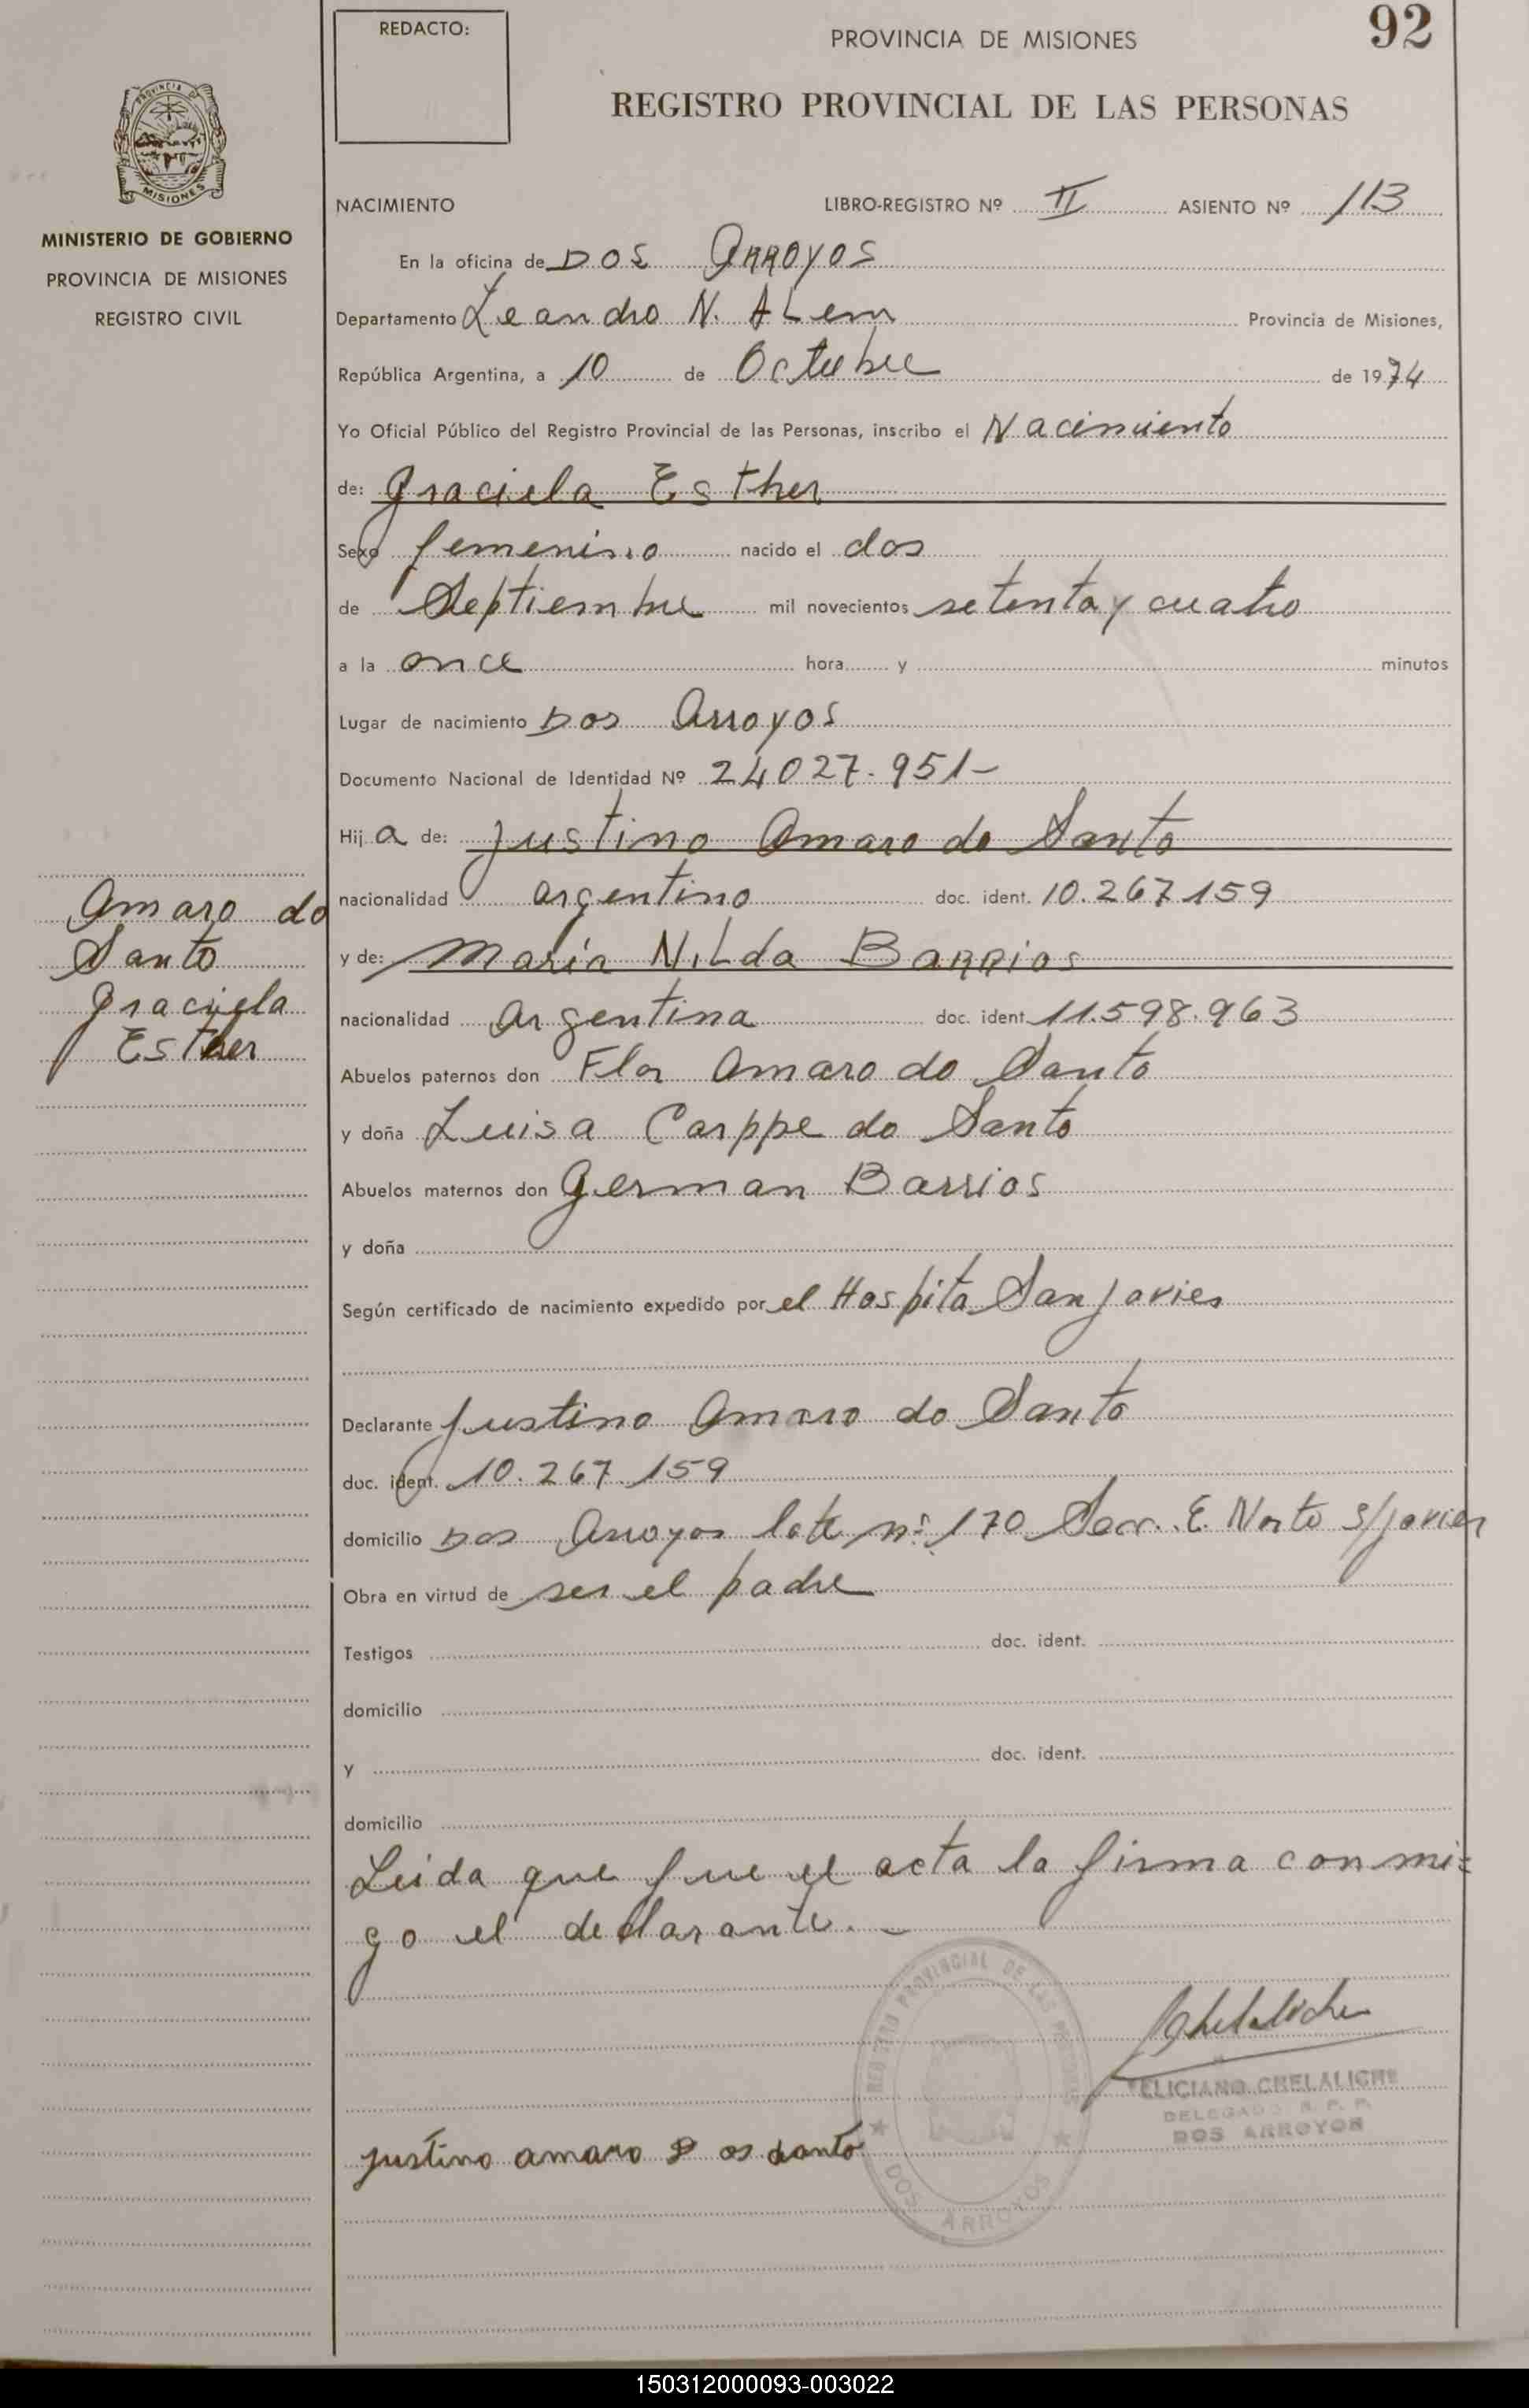 REDACTO:
92
PROVINCIA DE MISIONES
REGISTRO PROVINCIAL DE LAS PERSONAS
PROVINCIA DE
MISIONES
MINISTERIO DE GOBIERNO
PROVINCIA DE MISIONES
REGISTRO CIVIL
NACIMIENTO LIBRO-REGISTRO Nº II ASIENTO Nº 113
En la oficina de DOS ARROYOS
Departamento Leandro N. ALem Provincia de Misiones,
República Argentina, a 10 de Octubre de 1974
Yo Oficial Público del Registro Provincial de las Personas, inscribo el Nacimiento
de: Graciela Esther
Sexo femenino nacido el dos
de Septiembre mil novecientos setenta y cuatro
a la once hora y minutos
Lugar de nacimiento Dos Arroyos
Documento Nacional de Identidad Nº 24027.951-
Hij a de: Justino Amaro do Santo
nacionalidad argentino doc. ident. 10.267.159
y de: María NiLda BARRios
nacionalidad Argentina doc. ident. 11.598.963
Abuelos paternos don Flor Amaro do Santo
y doña Luisa Carppe do Santo
Abuelos maternos don German Barrios
y doña
Según certificado de nacimiento expedido por el Hospita San Javier
Declarante Justino Amaro do Santo
doc. ident. 10.267.159
domicilio Dos Arroyos lote nº 170 Secc. E. Norto S/Javier
Obra en virtud de ser el padre
Testigos doc. ident.
domicilio
y doc. ident.
domicilio
Leida que fue el acta la firma conmi=
go el declarante.-
Amaro do
Santo
Graciela
Esther
REGISTRO PROVINCIAL DE LAS PERSONAS
DOS ARROYOS
FELICIANO CHELALICHE
DELEGADO R. P. P.
DOS ARROYOS
Justino amaro D os santo
150312000093-003022